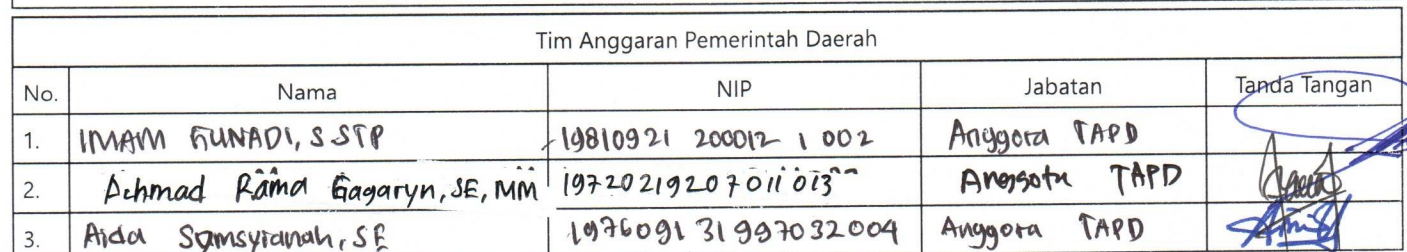 Tim Anggaran Pemerintah Daerah
No. Nama NIP Jabatan Tanda Tangan
1. IMAM GUNADI, S STP 19810921 200012 1 002 Anggota TAPD
2. Achmad Rama Gagaryn, SE, MM 197202192007011013 Anggota TAPD
3. Aida Samsyianah, SE 197609131997032004 Anggota TAPD